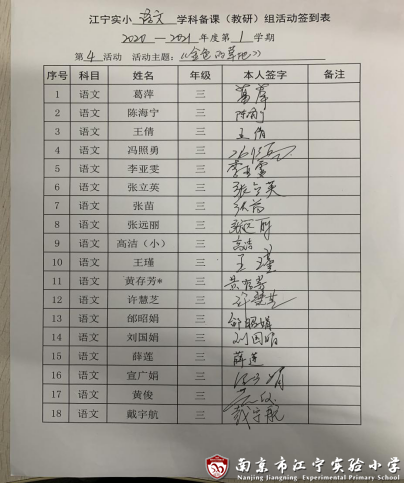 江宁实小 语文 学科备课（教研）组活动签到表
2020 — 2021 年度第 1 学期
第 4 活动 活动主题：《金色的草地》
序号 科目 姓名 年级 本人签字 备注
1 语文 葛萍 三 葛萍
2 语文 陈海宁 三
3 语文 王倩 三 王倩
4 语文 冯照勇 三
5 语文 李亚雯 三 李亚雯
6 语文 张立英 三 张立英
7 语文 张苗 三 张苗
8 语文 张远丽 三
9 语文 高洁（小） 三 高洁
10 语文 王瑾 三 王瑾
11 语文 黄存芳* 三 黄存芳
12 语文 许慧芝 三 许慧芝
13 语文 邰昭娟 三 邰昭娟
14 语文 刘国娟 三 刘国娟
15 语文 薛莲 三 薛莲
16 语文 宣广娟 三
17 语文 黄俊 三
18 语文 戴宇航 三 戴宇航
南京市江宁实验小学
Nanjing Jiangning Experimental Primary School